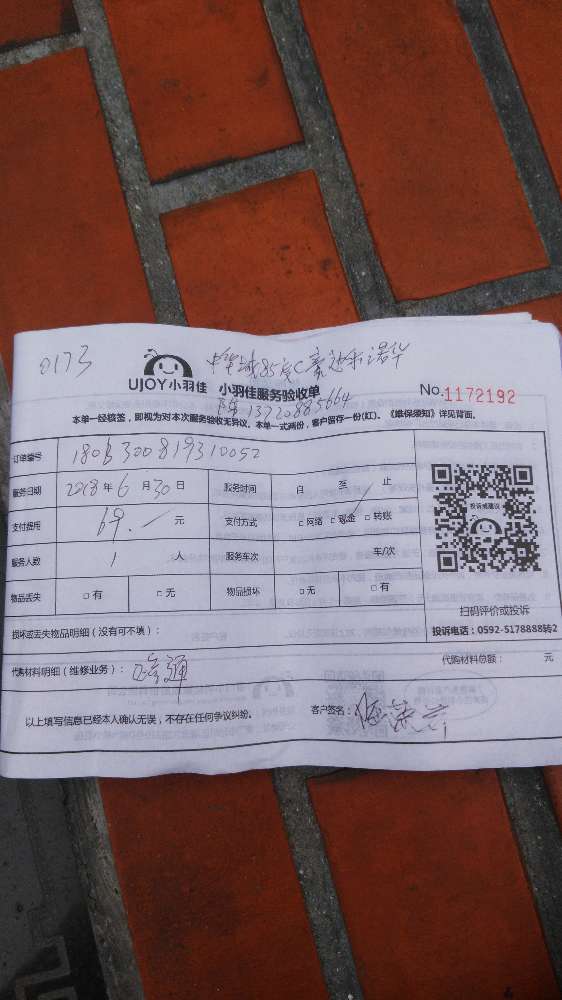 0173
UJOY小羽佳 小羽佳服务验收单
No.1172192
13720885664
本单一经核签，即视为对本次服务验收无异议。本单一式两份，客户留存一份(红)。《维保须知》详见背面。
订单编号
服务日期 2018年6月30日 服务时间 自 至 止
支付费用 69. 元 支付方式 □网络 □现金 □转账
服务人数 1 人 服务车次 车/次
物品丢失 □有 □无 物品损坏 □无 □有
投诉或建议
扫码评价或投诉
投诉电话：0592-5178888转2
损坏或丢失物品明细（没有可不填）：
代购材料明细（维修业务）： 代购材料总额： 元
以上填写信息已经本人确认无误，不存在任何争议纠纷。 客户签名：